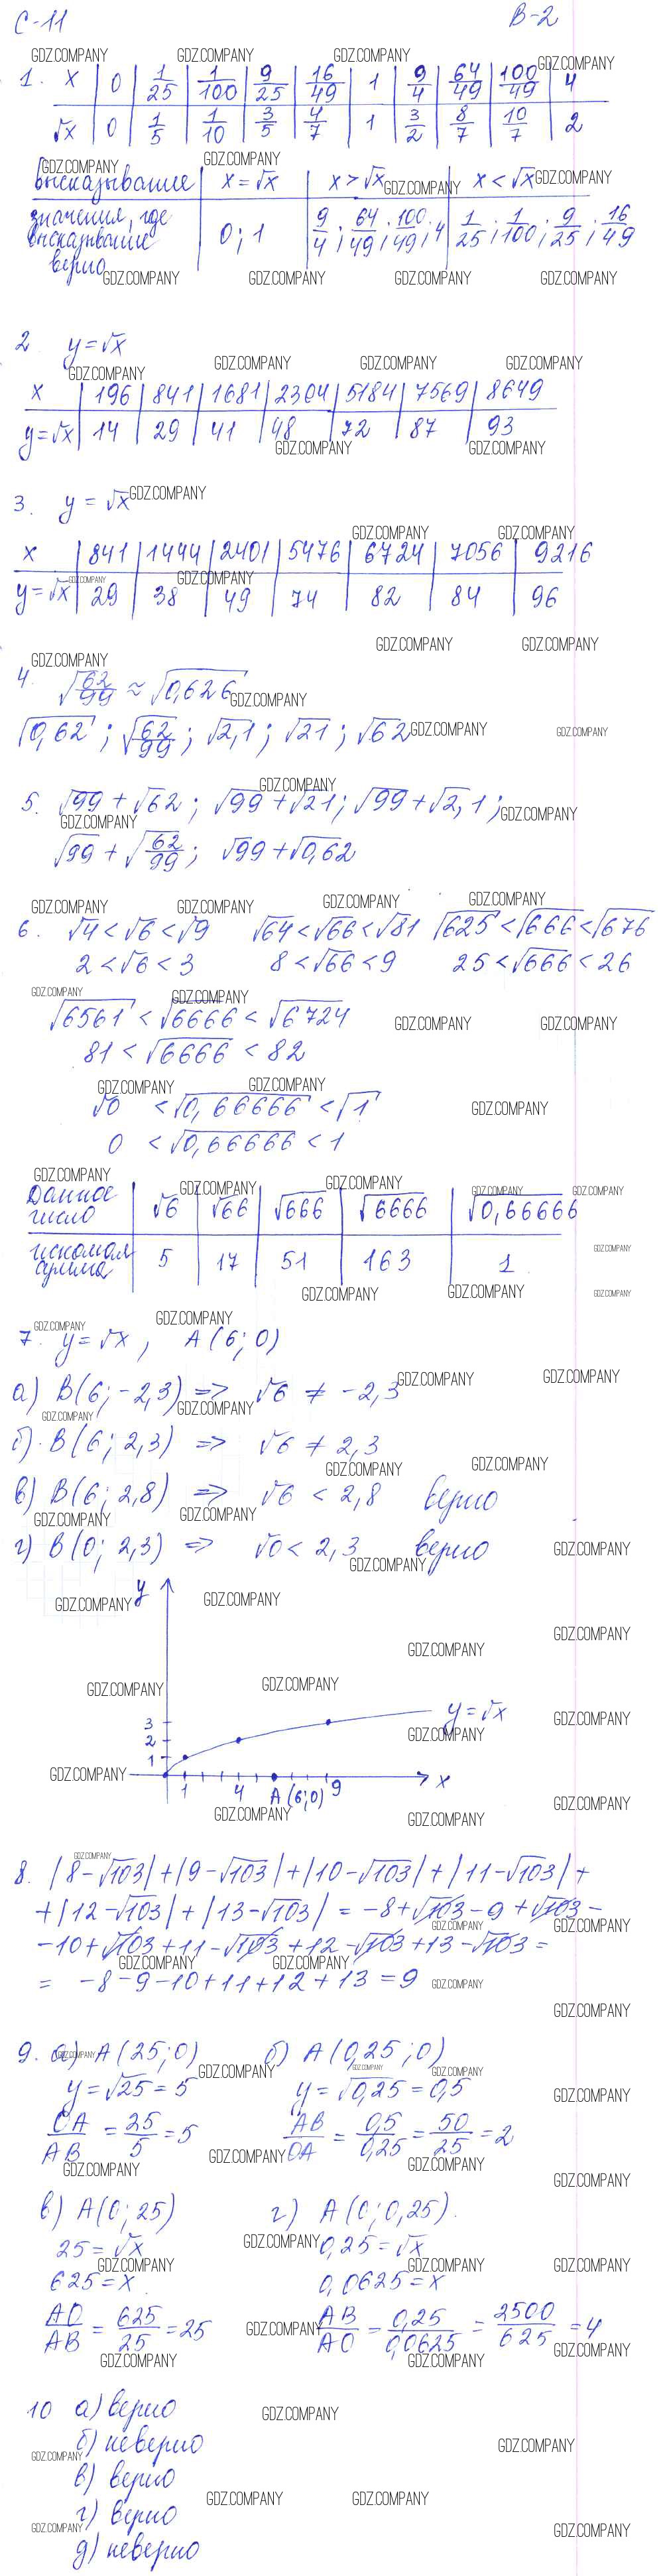 С-11 В-2
1. x | 0 | 1/25 | 1/100 | 9/25 | 16/49 | 1 | 9/4 | 64/49 | 100/49 | 4
√x | 0 | 1/5 | 1/10 | 3/5 | 4/7 | 1 | 3/2 | 8/7 | 10/7 | 2
Высказывание | x = √x | x > √x | x < √x
значения, где высказывание верно | 0; 1 | 9/4; 64/49; 100/49; 4 | 1/25; 1/100; 9/25; 16/49
2 y = √x
x | 196 | 841 | 1681 | 2304 | 5184 | 7569 | 8649
y = √x | 14 | 29 | 41 | 48 | 72 | 87 | 93
3. y = √x
x | 841 | 1444 | 2401 | 5476 | 6724 | 7056 | 9216
y = √x | 29 | 38 | 49 | 74 | 82 | 84 | 96
4. √(62/99) ≈ √0,626
√0,62; √(62/99); √2,1; √21; √62
5. √99 + √62; √99 + √21; √99 + √2,1;
√99 + √(62/99); √99 + √0,62
6. √4 < √6 < √9 √64 < √66 < √81 √625 < √666 < √676
2 < √6 < 3 8 < √66 < 9 25 < √666 < 26
√6561 < √6666 < √6724
81 < √6666 < 82
√0 < √0,66666 < √1
0 < √0,66666 < 1
Данное число | √6 | √66 | √666 | √6666 | √0,66666
искомая сумма | 5 | 17 | 51 | 163 | 1
7. y = √x, A(6; 0)
а) B(6; -2,3) => √6 ≠ -2,3
б). B(6; 2,3) => √6 ≠ 2,3
в) B(6; 2,8) => √6 < 2,8 верно
г) B(0; 2,3) => √0 < 2,3 верно
y
y = √x
3
2
1
1 4 A(6;0) 9 x
8. |8-√103| + |9-√103| + |10-√103| + |11-√103| +
+ |12-√103| + |13-√103| = -8+√103-9+√103-
-10+√103+11-√103+12-√103+13-√103 =
= -8-9-10+11+12+13 = 9
9. а) A(25; 0) б) A(0,25; 0)
y = √25 = 5 y = √0,25 = 0,5
OA/AB = 25/5 = 5 AB/OA = 0,5/0,25 = 50/25 = 2
в) A(0; 25) г) A(0; 0,25).
25 = √x 0,25 = √x
625 = x 0,0625 = x
AO/AB = 625/25 = 25 AB/AO = 0,25/0,0625 = 2500/625 = 4
10 а) верно
б) неверно
в) верно
г) верно
д) неверно
GDZ.COMPANY